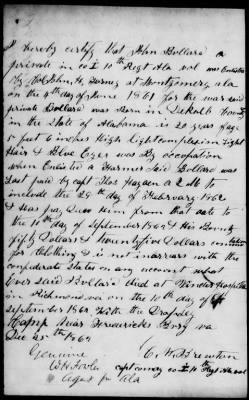 I hereby certify that John Bollard a
private in co I 10th Regt Ala vol was Enlisted
By Col John H. Forney at Montgomery ala
on the 4th day of June 1861 for the war said
private Bollard was Born in DeKalb County
in the State of Alabama is 20 years of age
5 feet 6 inches High Light complexion Light
Hair & Blue Eyes was By occupation
when Enlisted a Farmer Said Bollard was
Last paid by capt Thos Hayden A Q M to
include the 28th day of February 1862
& was pay Due him from that date to
the 10th day of September 1862 & his Bounty
fifty Dollars & twenty five Dollars
for clothing & is not in arrears with the
confederate States on any account what
Ever said Bollard died at Winder Hospital
in Richmond va on the 10th day of
September 1862 With the Dropsy
Camp Near Fredericks Burg va
Dec 25th 1862
Genuine
C. W. Brewton
W H Fowler
capt comdg co I 10th Regt Ala vol
Agent for Ala